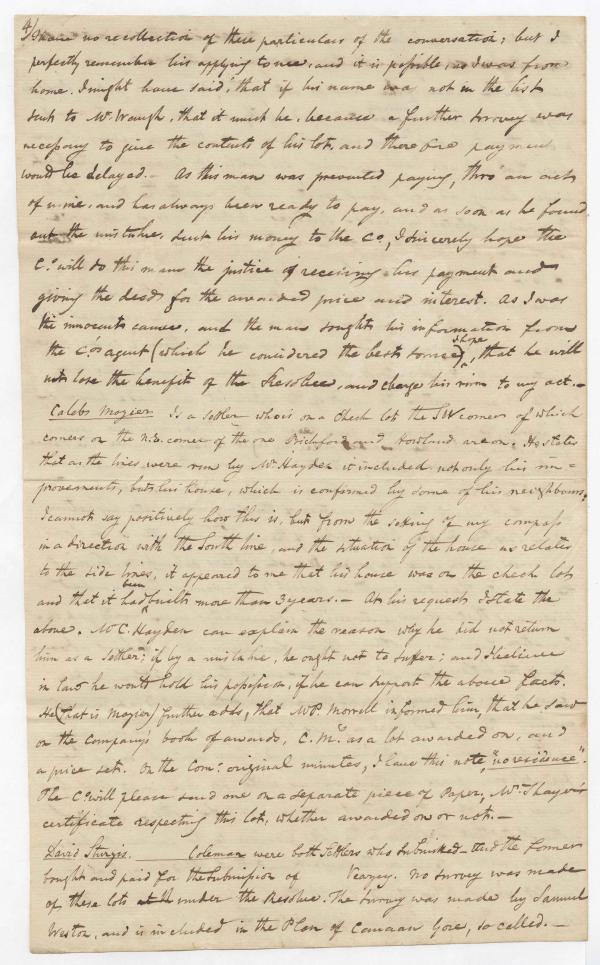 4/ I have no recollection of these particulars of the conversation; but I
perfectly remember his applying to me, and it is possible, as I was from
home. I might have said, that if his name was not in the list
sent to Mr. Waugh, that it must be, because a further survey was
necessary to give the contents of his lot, and therefore payment
would be delayed. - As this man was prevented paying, thro' an act
of mine, and has always been ready to pay, and as soon as he found
out the mistake, sent his money to the Co., I sincerely hope the
Co. will do this man the justice of receiving his payment and
giving the deed for the awarded price and interest. As I was
the innocent cause, and the man sought his information from
the Co's agent (which he considered the best source), I hope that he will
not lose the benefit of the Resolve, and charge his ruin to my act. -
Caleb Mozier Is a settler who is on a check lot the SW corner of which
corners on the N.E. corner of the one Bickford and Howland are on. He states
that as the lines were run by Mr. Hayden it included not only his im=
provements, but his house, which is confirmed by some of his neighbours,
I cannot say positively how this is, but from the setting of my compass
in a direction with the South line, and the situation of the house as relates
to the side lines, it appeared to me that his house was on the check lot
and that it had been built more than 3 years. - At his request I state the
above. Mr C. Hayden can explain the reason why he did not return
him as a settler; if by a mistake, he ought not to suffer; and I believe
in law he would hold his possession, if he can support the above facts.
He (that is Mozier) further adds, that Mr P. Morrill informed him, that he saw
on the Company's book of awards, C. M's as a lot awarded on, and
a price set. On the Com: original minutes, I have this note, "no residence".
The Co. will please send one on a separate piece of Paper, Mr. Thayer's
certificate respecting this lot, whether awarded on or not. -
David Sturgis. Coleman were both Settlers who submitted - and the former
bought and paid for the submission of Vearzey. No survey was made
of these lots under the Resolve. The survey was made by Samuel
Weston, and is included in the Plan of Canaan Gore, so called. -